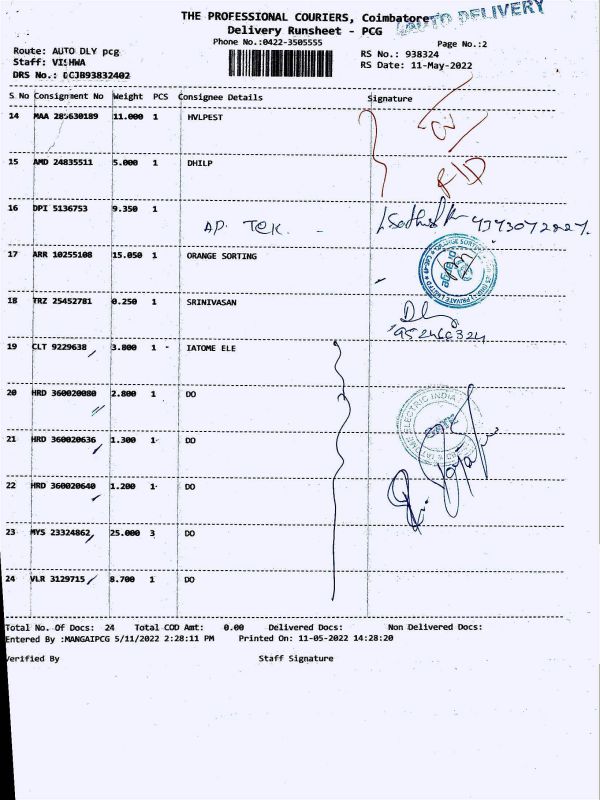 THE PROFESSIONAL COURIERS, Coimbatore
AUTO DELIVERY
Delivery Runsheet - PCG
Phone No.:0422-3505555
Page No.:2
Route: AUTO DLY pcg
RS No.: 938324
Staff: VISHWA
RS Date: 11-May-2022
DRS No.: DCJB93832402
S No Consignment No Weight PCS Consignee Details Signature
14 MAA 285630189 11.000 1 HVLPEST
15 AMD 24835511 5.000 1 DHILP
16 DPI 5136753 9.350 1
AP. TEK. -
17 ARR 10255108 15.050 1 ORANGE SORTING
18 TRZ 25452781 0.250 1 SRINIVASAN
19 CLT 9229638 3.800 1 IATOME ELE
20 HRD 360020080 2.800 1 DO
ELECTRIC INDIA
21 HRD 360020636 1.300 1 DO
22 HRD 360020640 1.200 1 DO
23 MYS 23324862 25.000 3 DO
24 VLR 3129715 8.700 1 DO
Total No. Of Docs: 24 Total COD Amt: 0.00 Delivered Docs: Non Delivered Docs:
Entered By :MANGAIPCG 5/11/2022 2:28:11 PM Printed On: 11-05-2022 14:28:20
Verified By Staff Signature